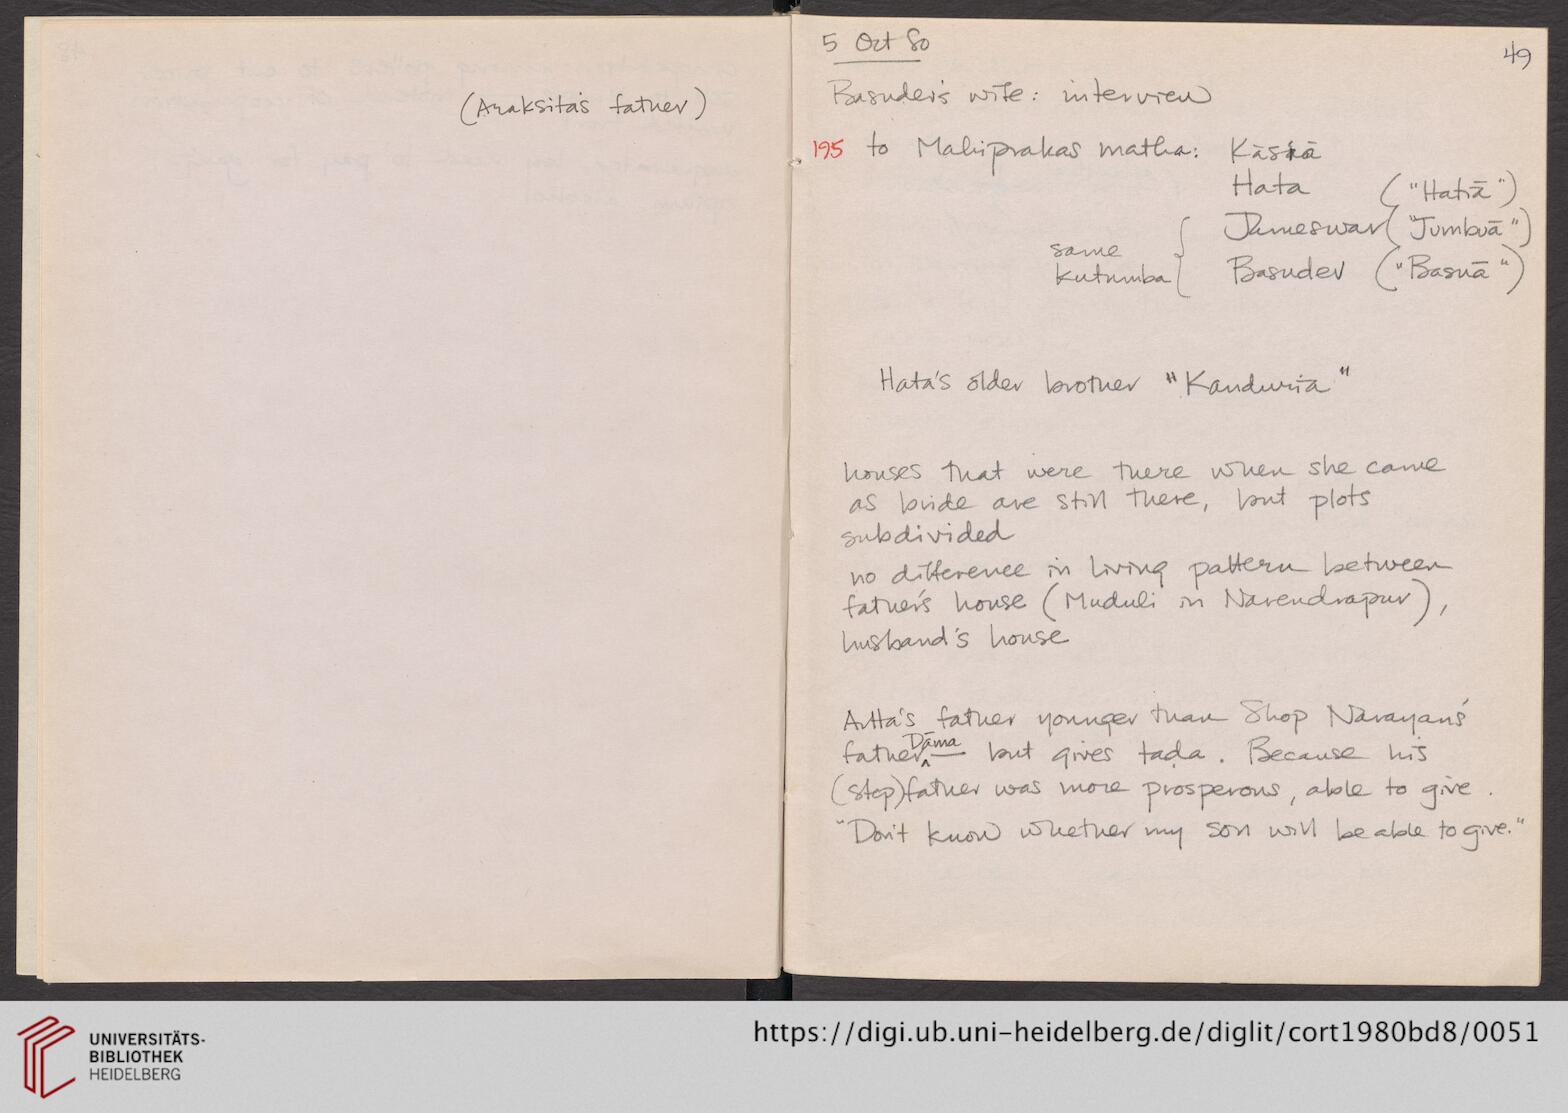 (Araksita's father)
5 Oct 80
49
Basudev's wife: interview
195 to Mahiprakas matha: Kāsiā
Hata ("Hatiā")
Jameswar ("Jumbuā")
same
kutumba { Basudev ("Basuā")
Hata's older brother "Kanduria"
houses that were there when she came
as bride are still there, but plots
subdivided
no difference in living pattern between
father's house (Muduli in Narendrapur),
husband's house
Artta's father younger than Shop Nārayan's
father ^ Dāma but gives tada. Because his
(step)father was more prosperous, able to give.
"Don't know whether my son will be able to give."
UNIVERSITÄTS-
BIBLIOTHEK
HEIDELBERG
https://digi.ub.uni-heidelberg.de/diglit/cort1980bd8/0051